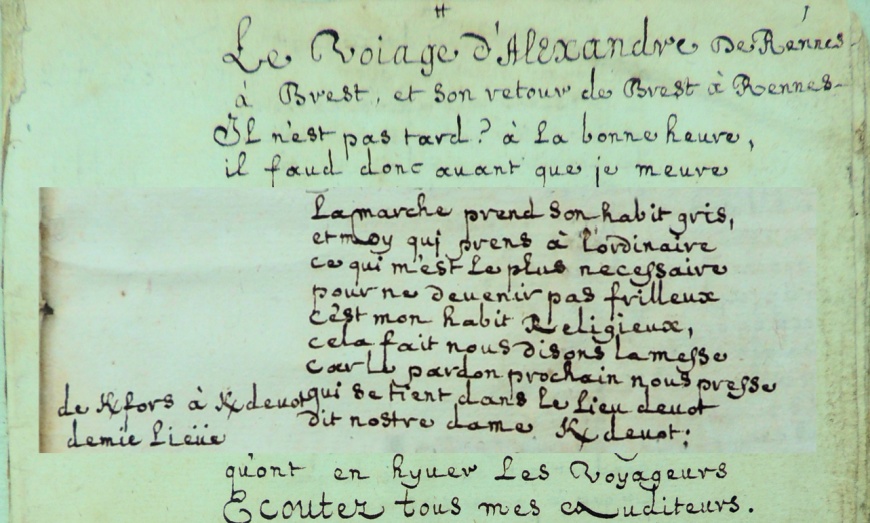 1
Le Voiage d'Alexandre De Rennes
à Brest, et son retour de Brest à Rennes
Il n'est pas tard? à la bonne heure,
il faud donc auant que je meure
La marche prend son habit gris,
et moy qui prens à l'ordinaire
ce qui m'est le plus necessaire
pour ne deuenir pas frilleux
c'est mon habit Religieux,
cela fait nous disons la messe
car le pardon prochain nous presse
qui se tient dans le lieu deuot
dit nostre dame K deuot;
de Kfors à K deuot
demie Lieüe
qu'ont en hyuer les Voyageurs
Ecoutez tous mes Auditeurs.